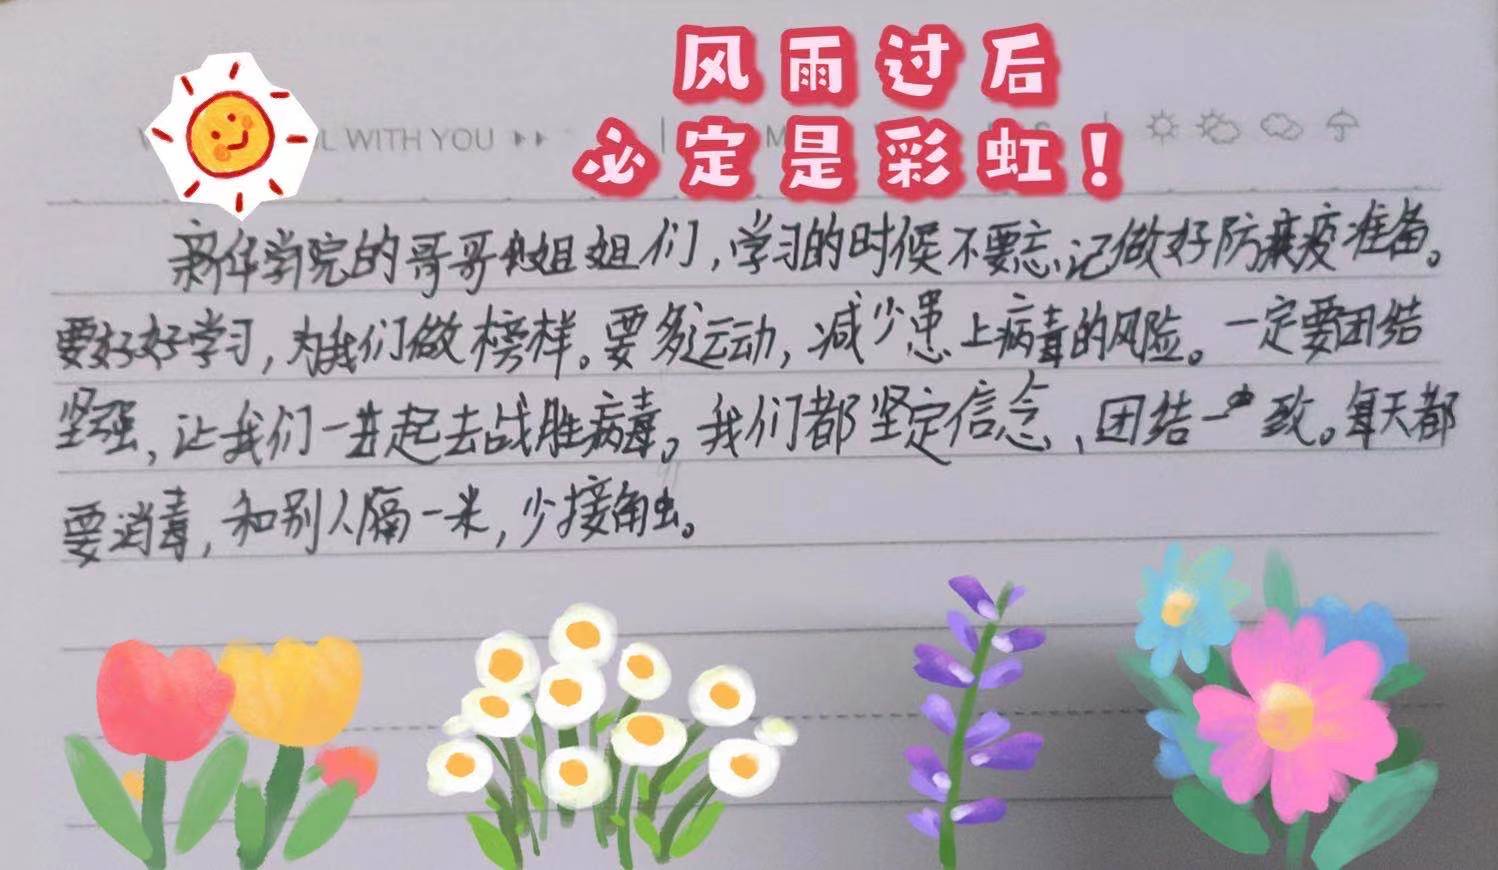 风雨过后
必定是彩虹！
L WITH YOU
新华学院的哥哥姐姐们，学习的时候不要忘记做好防疫准备。
要好好学习，为我们做榜样。要多运动，减少患上病毒的风险。一定要团结
坚强，让我们一起去战胜病毒。我们都坚定信念，团结一致。每天都
要消毒，和别人隔一米，少接触。